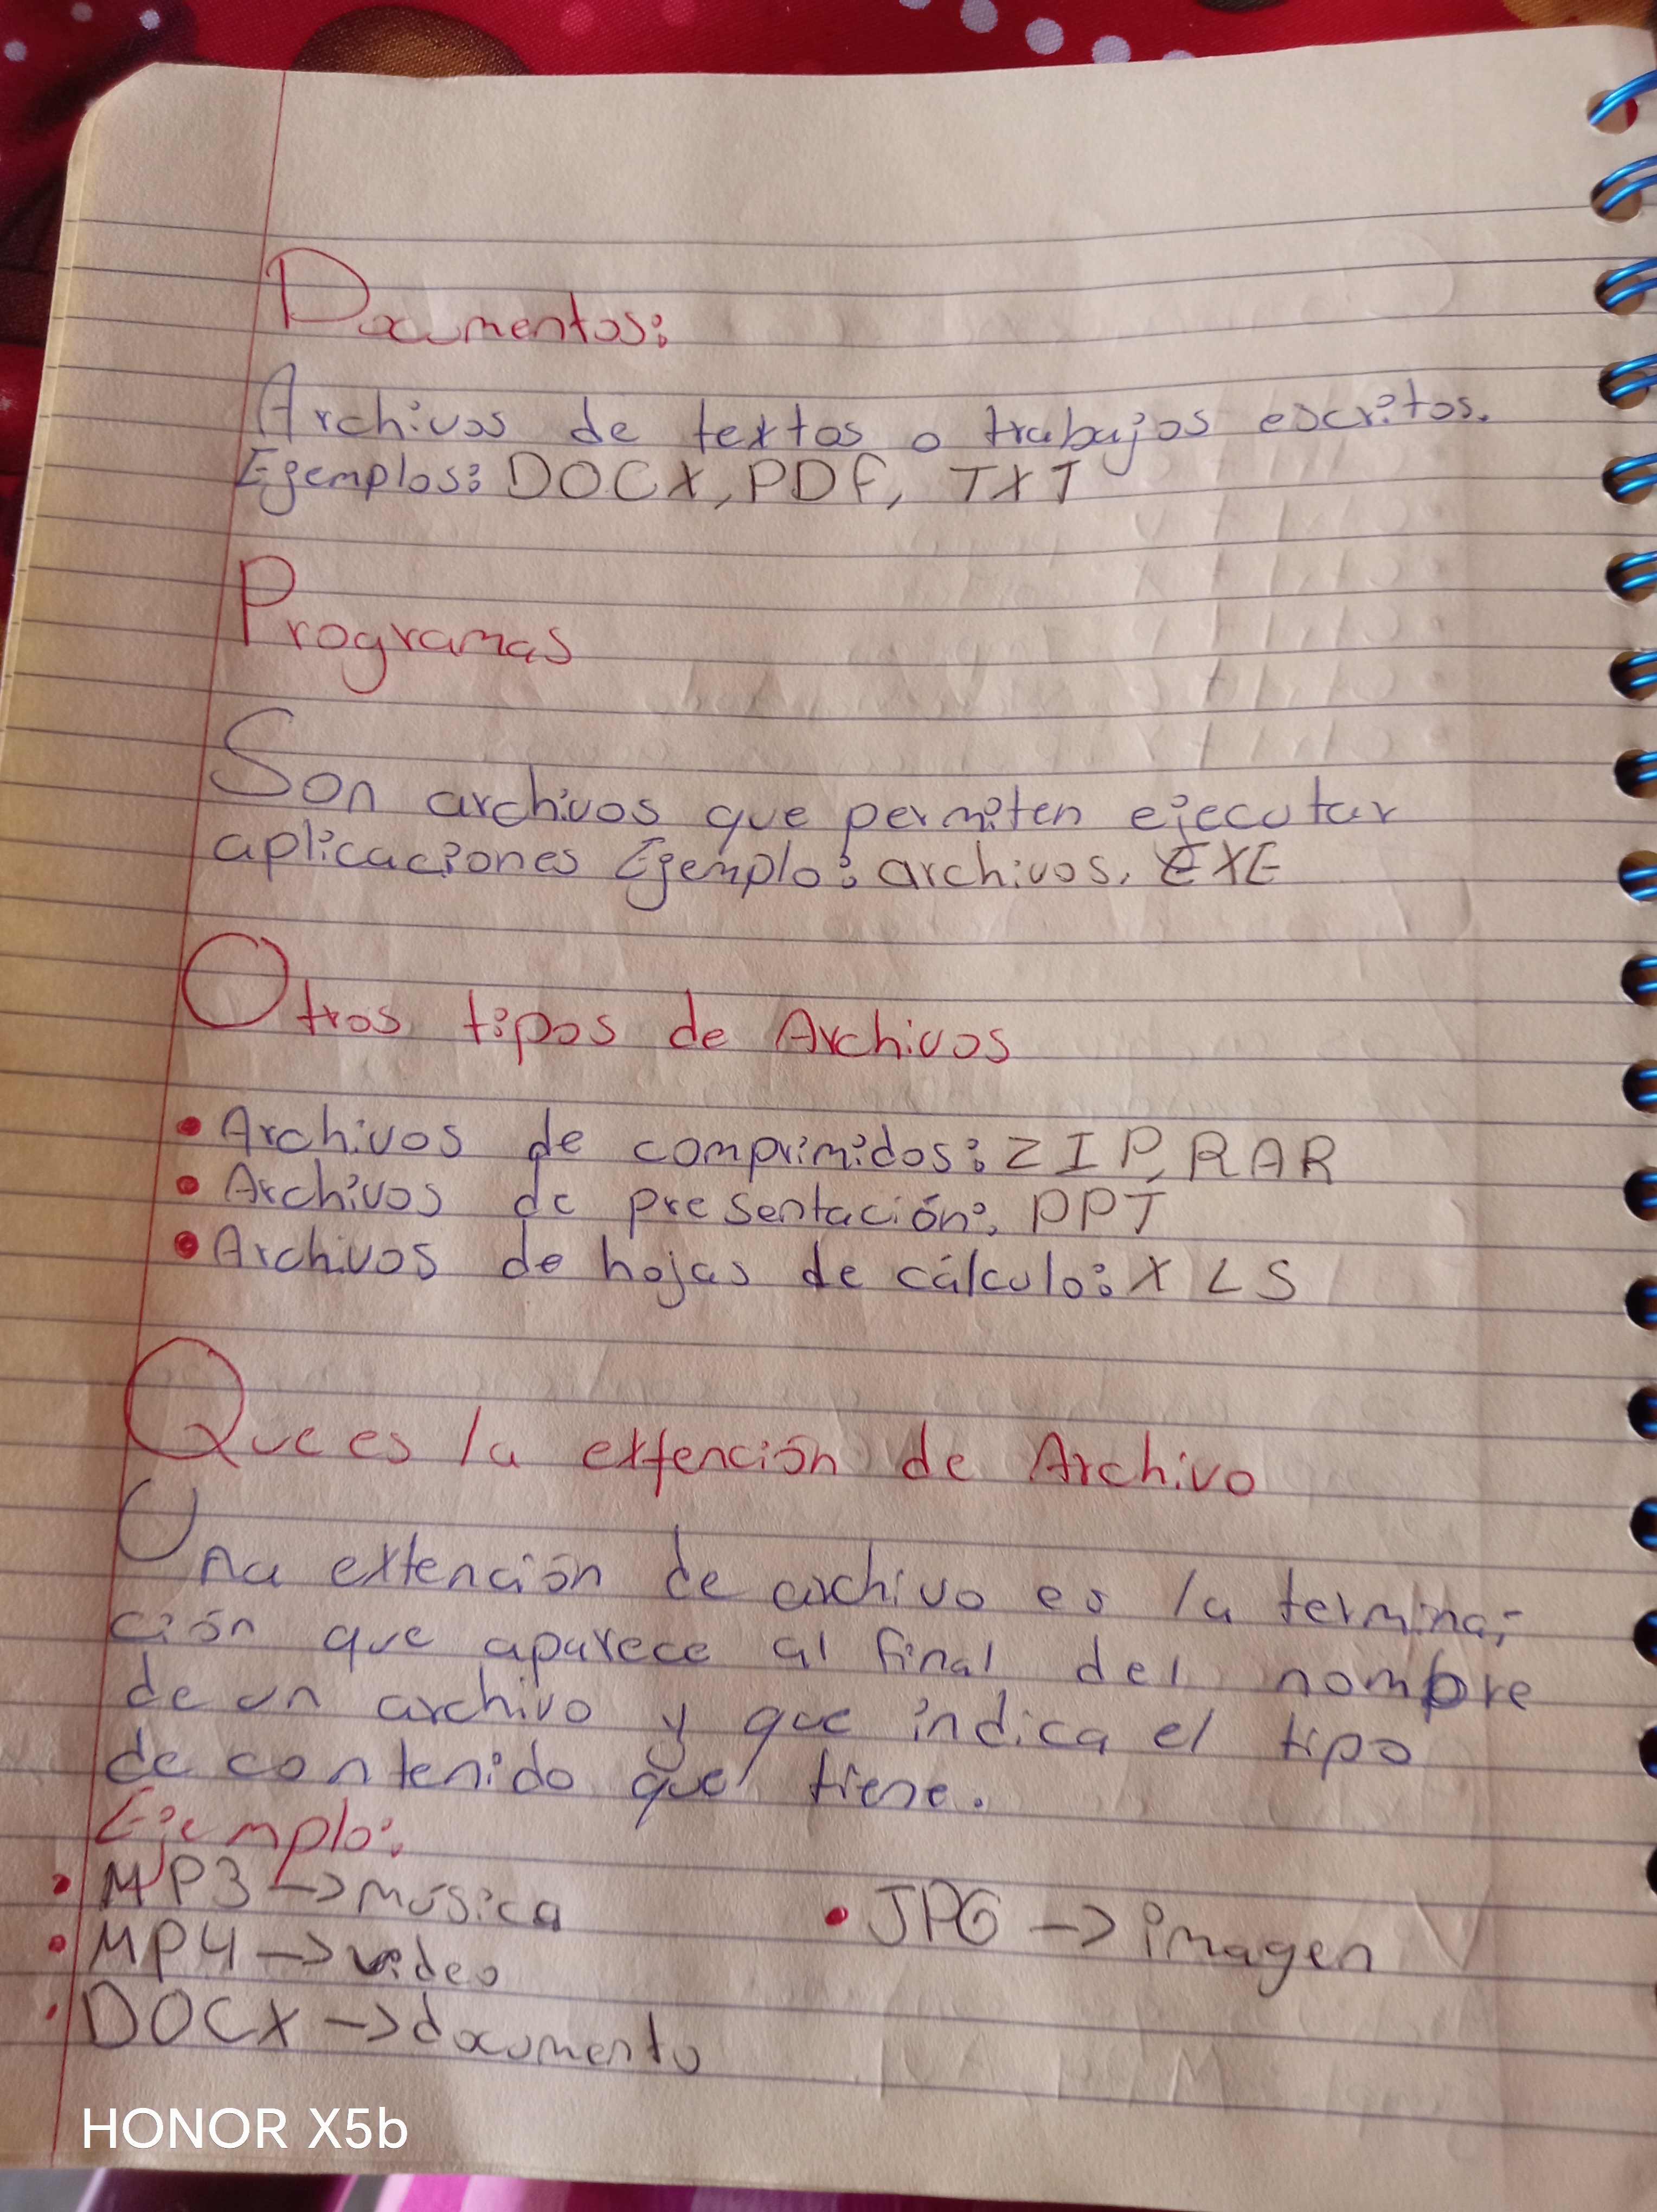 Documentos:
Archivos de textos o trabajos escritos.
Ejemplos: DOCX, PDF, TXT
Programas
Son archivos que permiten ejecutar
aplicaciones Ejemplo: archivos. EXE
Otros tipos de Archivos
• Archivos de comprimidos: ZIP, RAR
• Archivos de presentación: PPT
• Archivos de hojas de cálculo: XLS
Que es la extención de Archivo
Una extención de archivo es la termina-
ción que aparece al final del nombre
de un archivo y que indica el tipo
de contenido que tiene.
Ejemplo:
• MP3 -> música
• JPG -> imagen
• MP4 -> video
• DOCX -> documento
HONOR X5b